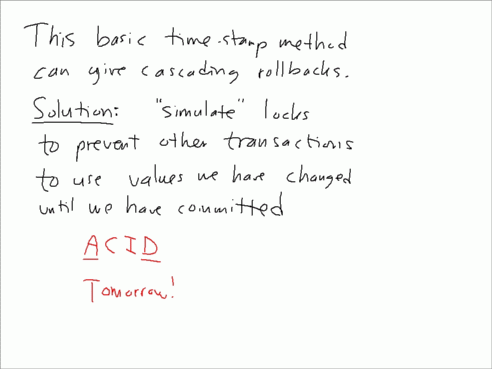 This basic time-stamp method
can give cascading rollbacks.
Solution: "simulate" locks
to prevent other transactions
to use values we have changed
until we have committed
ACID
Tomorrow!